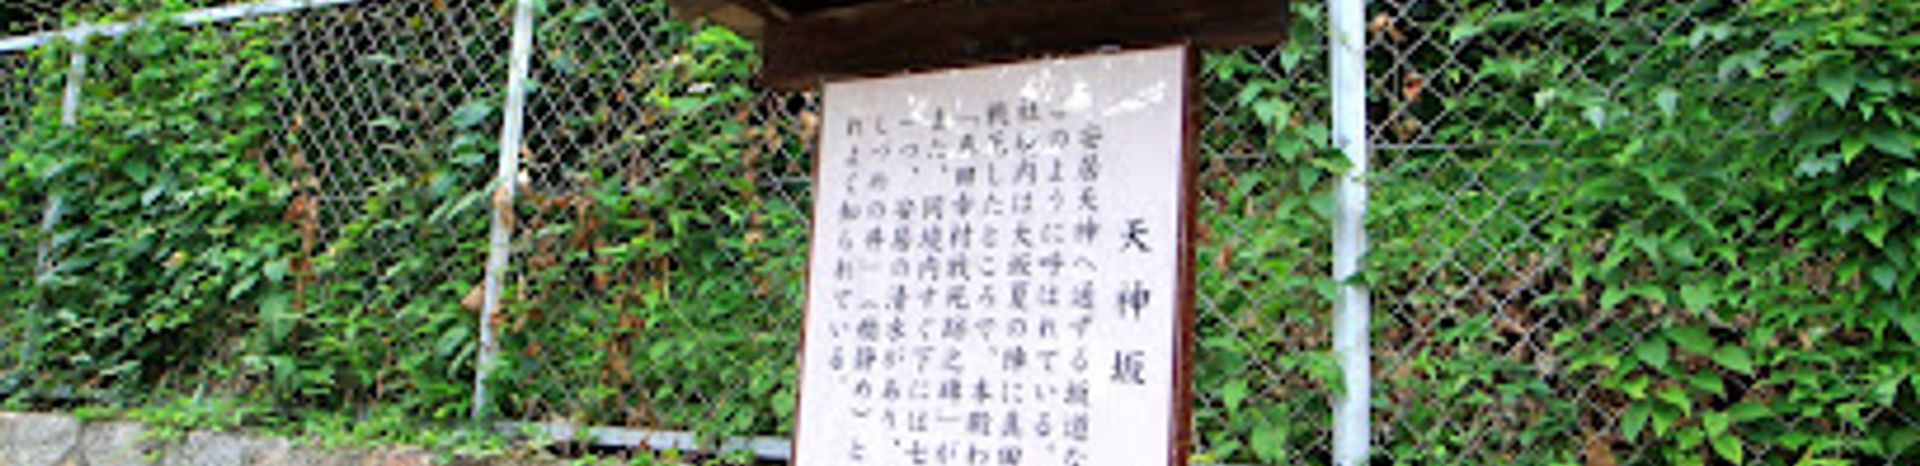 天神坂
安居天神へ通ずる坂道な
このように呼ばれている。
社域内は大坂夏の陣に真田
戦死したところで、本殿わ
「真田幸村戦死跡之碑」が
また、同境内すぐ下には七
一つ、安居の清水があり、
しづめの井」（癇静め）と
れよく知られている。